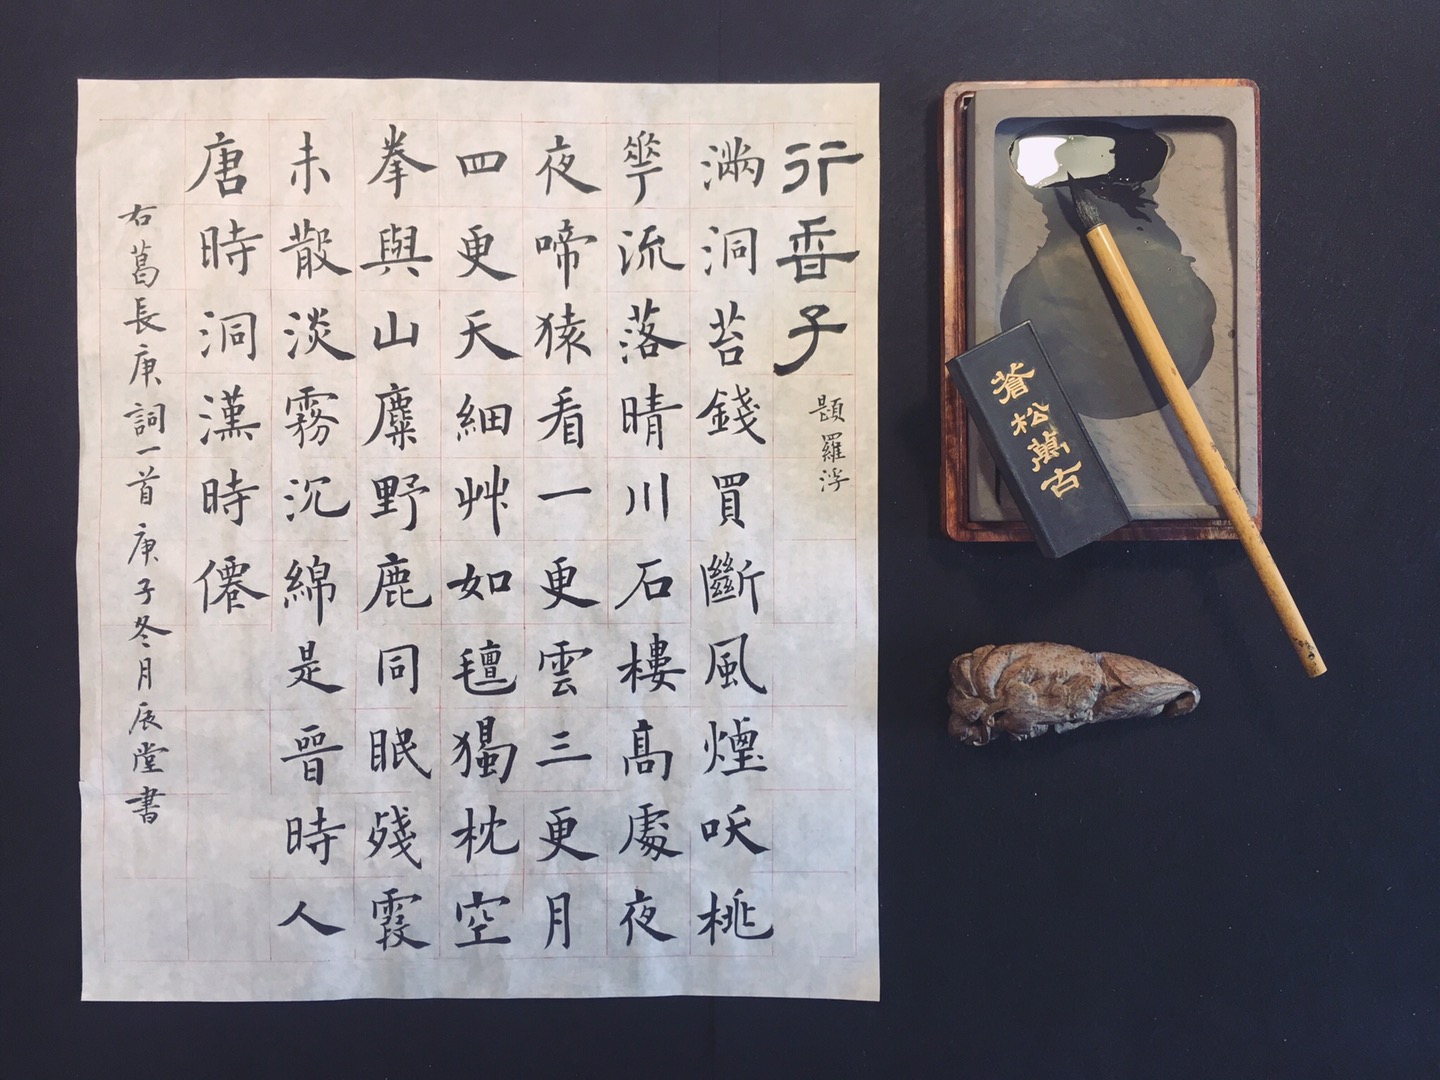 行香子
題羅浮
滿洞苔錢買斷風煙吷桃
華流落晴川石樓高處夜
夜啼猿看一更雲三更月
四更天細艸如氊獨枕空
拳與山麋野鹿同眠殘霞
未散淡霧沉綿是晉時人
唐時洞漢時僊
右葛長庚詞一首庚子冬月辰堂書
蒼松萬古